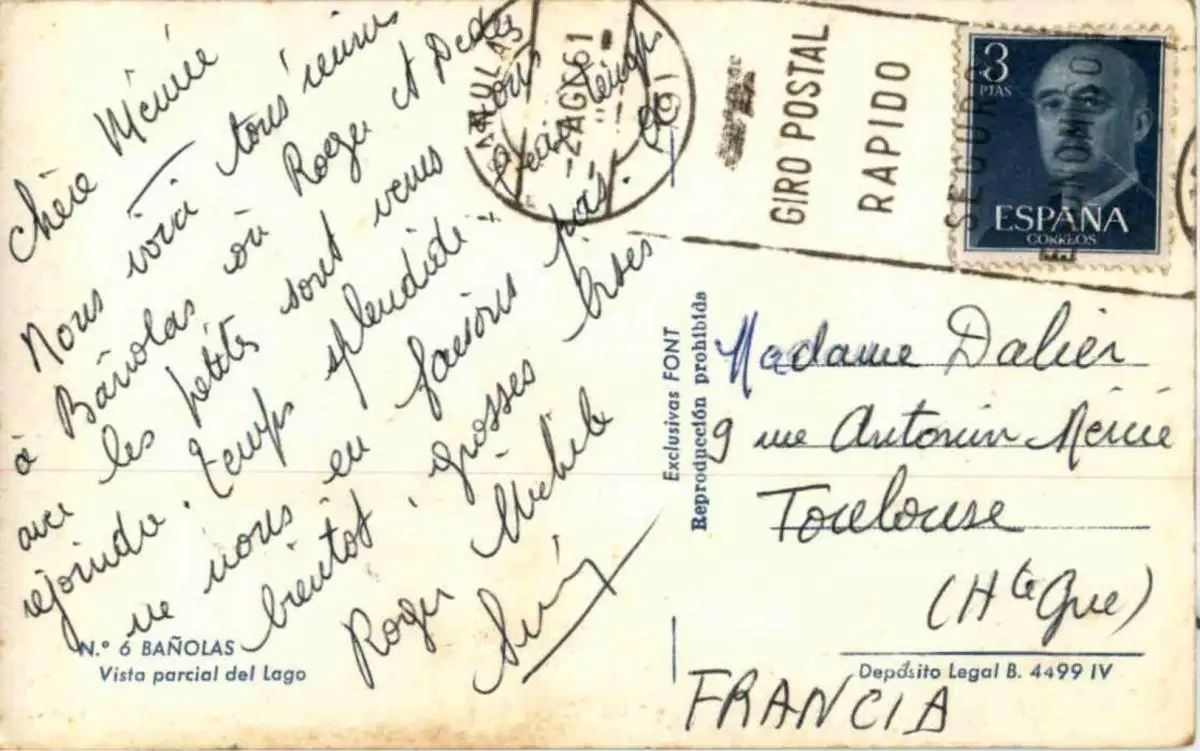 Chère
Nous voici tous réunis
à Bañolas où Roger et Dédée
avec les petits sont venus nous
rejoindre. Temps splendide
ne nous en faisons pas.
bientôt, grosses bises
Roger Michele
N.º 6 BAÑOLAS
Vista parcial del Lago
-2 AGO 61
GIRO POSTAL
RAPIDO
SEGURO
3
PTAS
ESPAÑA
CORREOS
Exclusivas FONT
Reproducción prohibida
Madame Dalier
9 rue Antonin Mercié
Toulouse
(Hte Gne)
FRANCIA
Depósito Legal B. 4499 IV